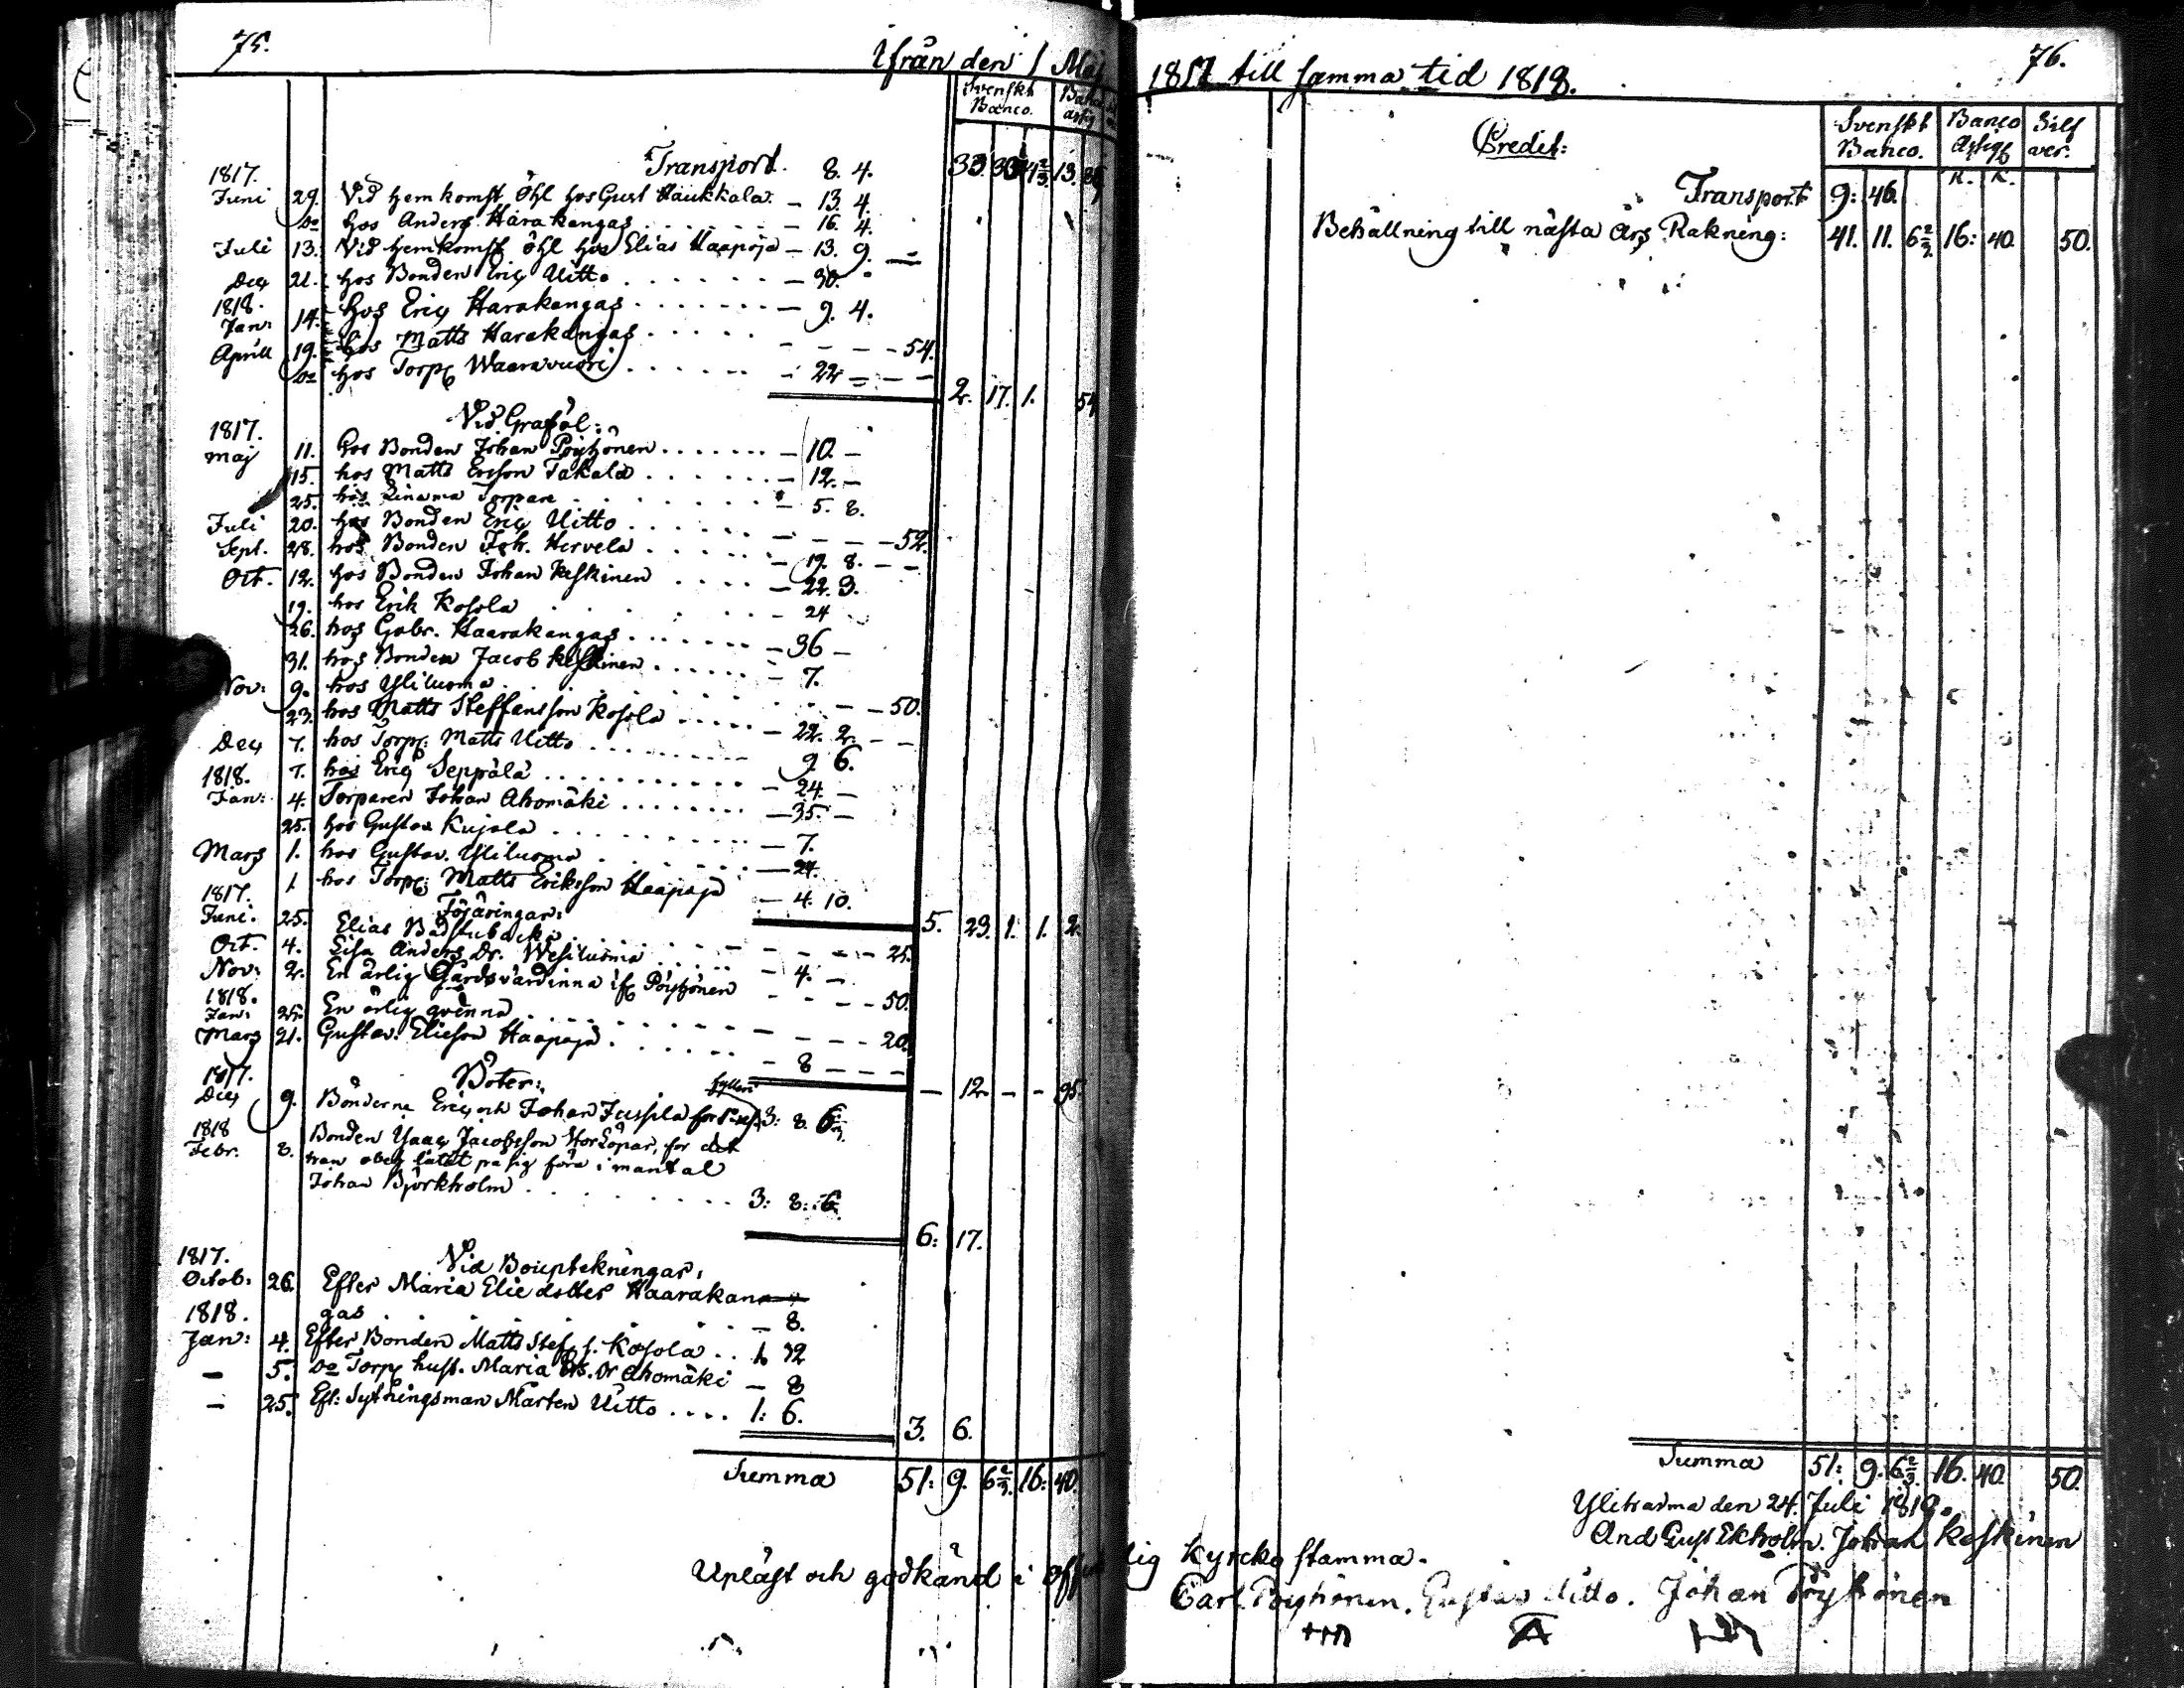 75.
Ifrån den 1 Maj
Svenskt Banco.
Transport. 8. 4. 33. 13.
1817.
Juni 29. Vid hemkomst öhl hos Gust Haukkala. – 13. 4
Do hos Anders Harakangas – 16. 4.
Juli 13. Vid hemkomst öhl hos Elias Haapoja – 13. 9.
Dec 21. hos Bonden Eric Uitto – 30.
1818.
Jan: 14. hos Eric Harakangas – 9. 4.
Aprill 19. hos Matts Harakangas – – – 54.
Do hos Torp. Waaravuori – 22 – –
2. 17. 1. 54
Vid Graföl:
1817.
Maj 11. hos Bonden Johan Pöyhönen – 10. –
15. hos Matts Ersson Takala – 12. –
25. hos Torpare – 5. 8.
Juli 20. hos Bonden Eric Uitto – – – 52.
Sept. 28. hos Bonden Joh. Hervela – 19. 8. – –
Oct. 12. hos Bonden Johan Keskinen – 22. 3.
19. hos Erik Kosola – 24
26. hos Gabr. Haarakangas – 36 –
31. hos Bonden Jacob Keskinen – 7.
Nov: 9. hos Yliluoma – – 50.
23. hos Matts Steffansson Kosola – 22. 2. – –
Dec 7. hos Torp: Matts Uitto 9. 6.
7. hos Eric Seppälä – 24. –
1818.
Jan: 4. Torparen Johan Ahomäki – 35. –
25. hos Gustav Kujala – 7.
Mars 1. hos Gustav. Yliluoma – 24.
1. hos Torp: Matts Eriksson Haapoja – 4. 10.
5. 23. 1. 1. 2.
1817.
Juni. 25. Elias – – – 25.
Oct. 4. Lisa Anders Dr. Wesiluoma – 4. –
Nov: 2. En ärlig Gårdsvärdinna if Pöyhönen – – – 50.
1818.
Jan: 25. En ärlig qvinna – – – – 20.
Mars 21. Gustav. Elieson Haapoja – 8 – – –
– 12. – – 95.
Böter:
1817.
Dec 9. Bönderne Eric och Johan Jussila för 3: 8.
1818
Febr. 8. Bonden Isaac Jacobsson, för det
han låtit på sig föra i mantal
Johan Björkholm 3: 8: 6
6: 17.
Vid Boupteckningar:
1817.
Octob: 26. Efter Maria Elie dotter Haarakan
gas – 8.
1818.
Jan: 4. Efter Bonden Matts Stef. s. Kosola 1. 32
– 5. Do Torp hust. Maria Dr Ahomäki – 8
– 25. Eft: Sytningsman Mårten Uitto 1: 6.
3. 6.
Summa 51: 9. 6 2/3. 16: 40.
Upläst och godkänd i offent
76.
1817 till samma tid 1818.
Credit:
Svenskt Banco.
Banco
Silf ver.
R. K.
Transport 9: 46.
Behållning till nästa Års Räkning: 41. 11. 6 2/3. 16: 40. 50.
Summa 51: 9. 6 2/3. 16. 40. 50.
Ylihärmä den 24. Juli 1819.
And Gust Ekholm. Johan Keskinen
lig Kyrcko stämma.
Carl Pöyhönen. Gustav Uitto. Johan Pöyhönen